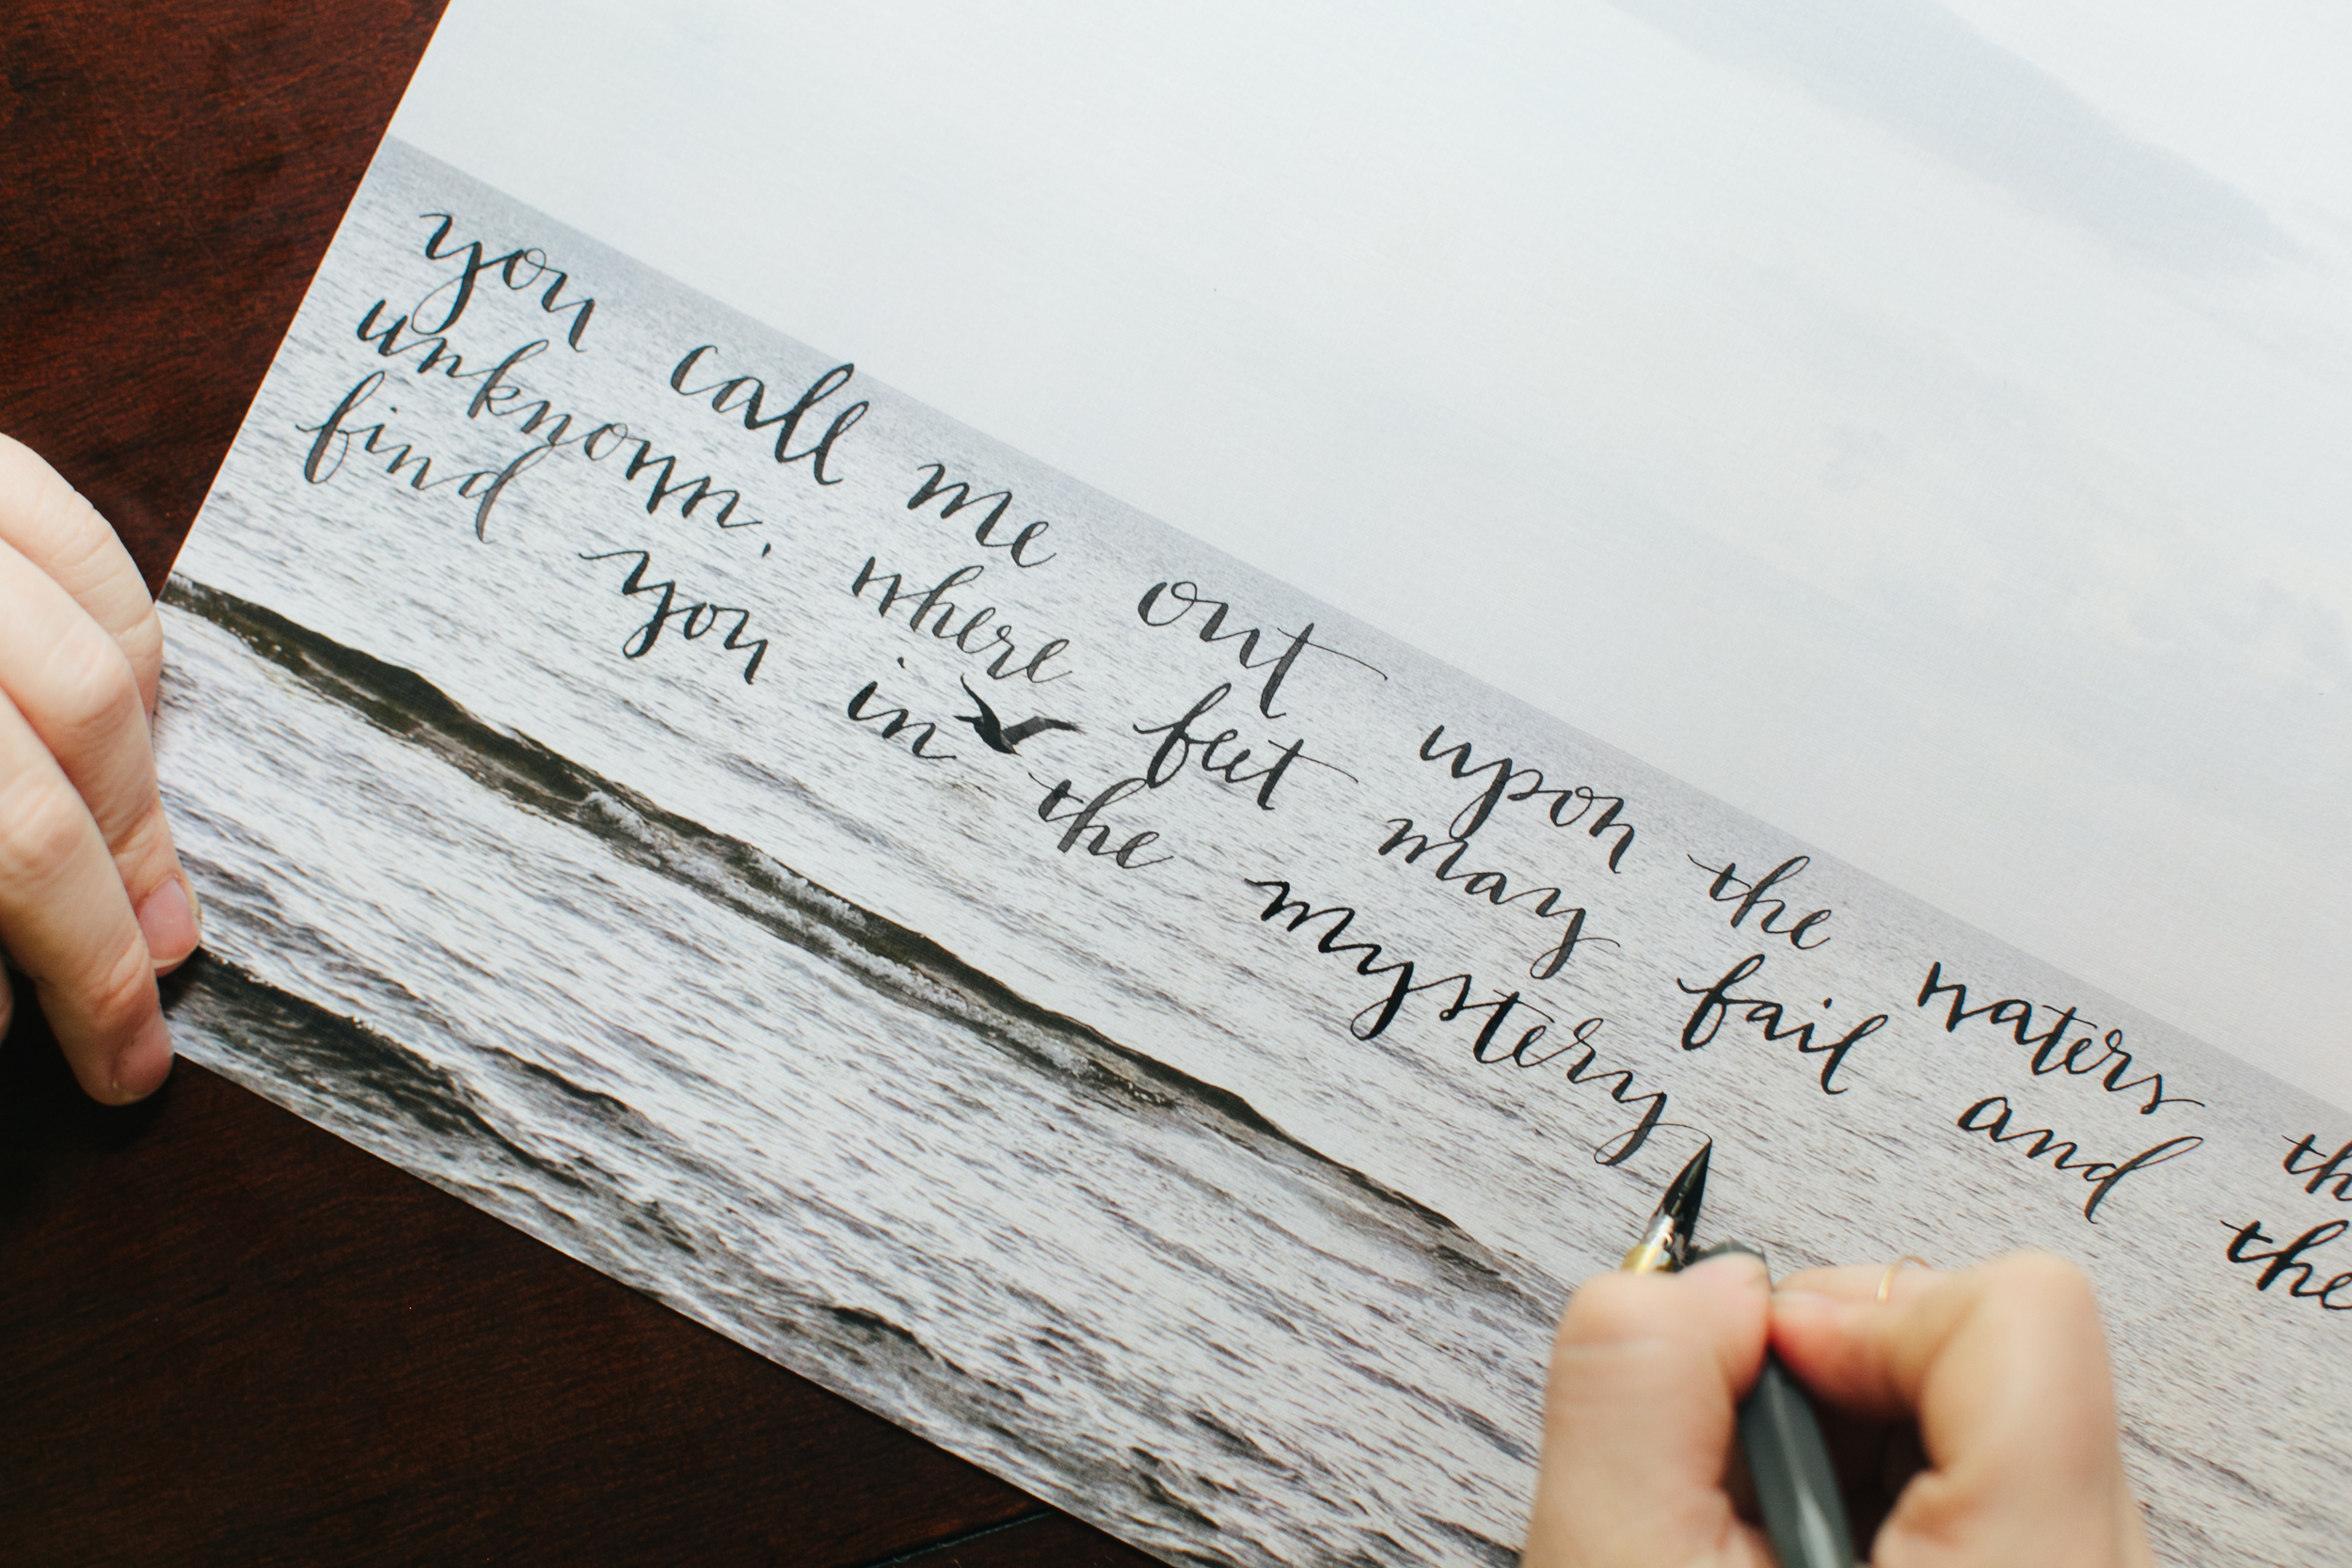 you call me out upon the waters th
unknown. where feet may fail and the
find you in the mystery